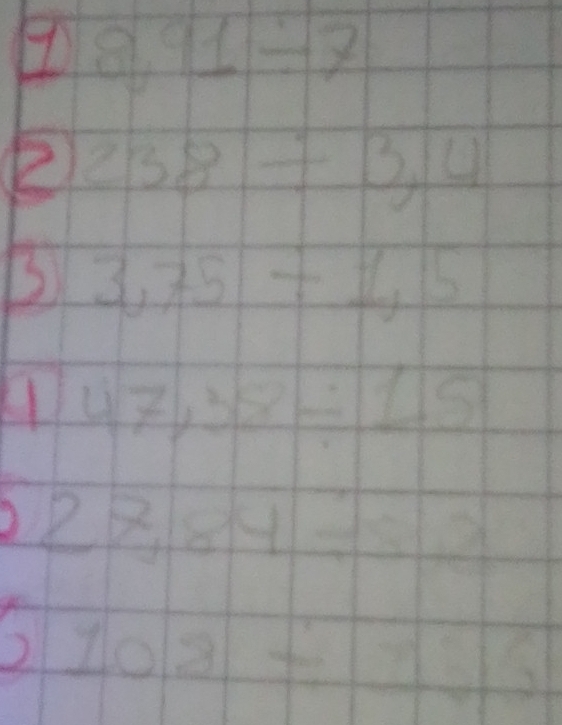 1 8,91 ÷ 7
2 238 ÷ 3,4
3 3,75 ÷ 1,5
4 47,38 ÷ 15
5 27,84 ÷
6 108 ÷